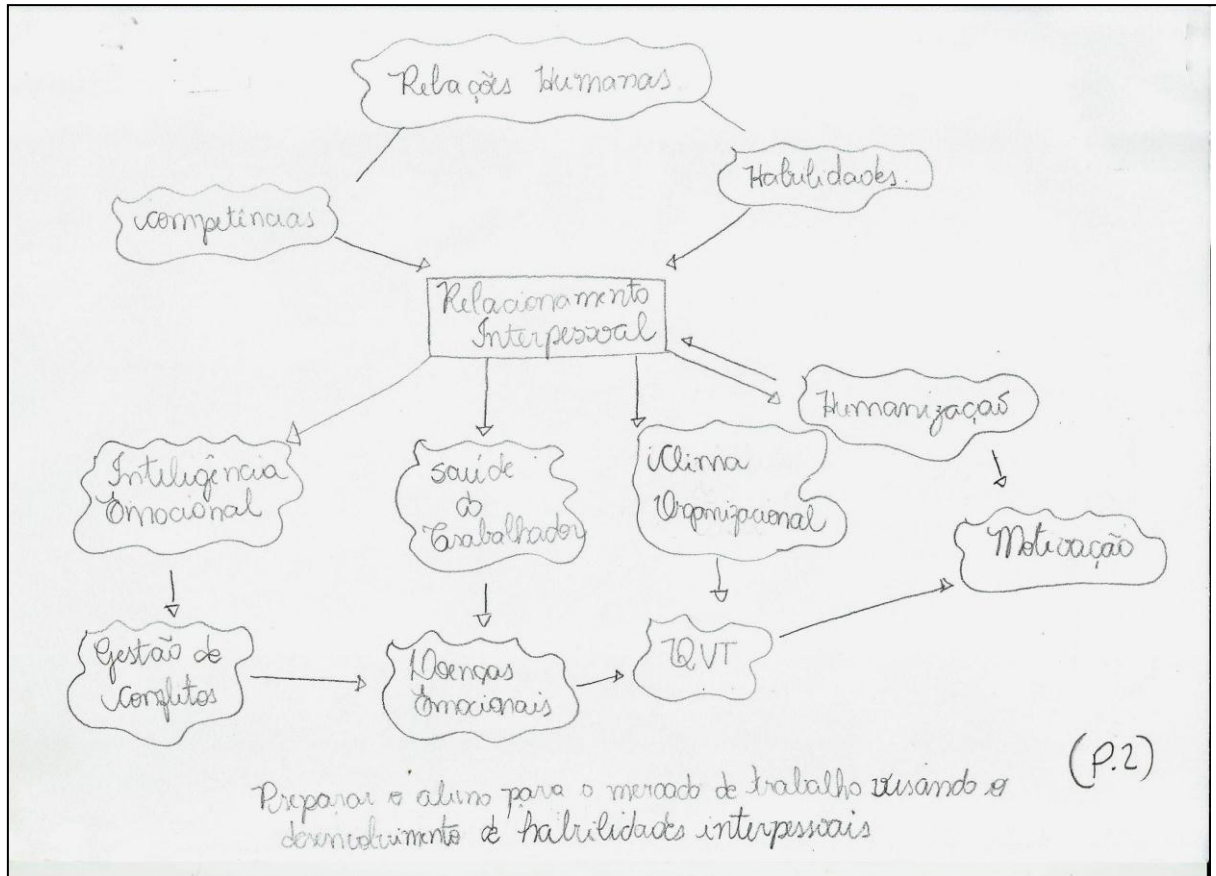 Relações Humanas.
Habilidades.
competências
Relacionamento
Interpessoal
Humanização
Inteligência
Emocional
saúde
do
Trabalhador
Clima
Organizacional
Motivação
Gestão de
Conflitos
Doenças
Emocionais
QVT
(P.2)
Preparar o aluno para o mercado de trabalho visando o
desenvolvimento de habilidades interpessoais